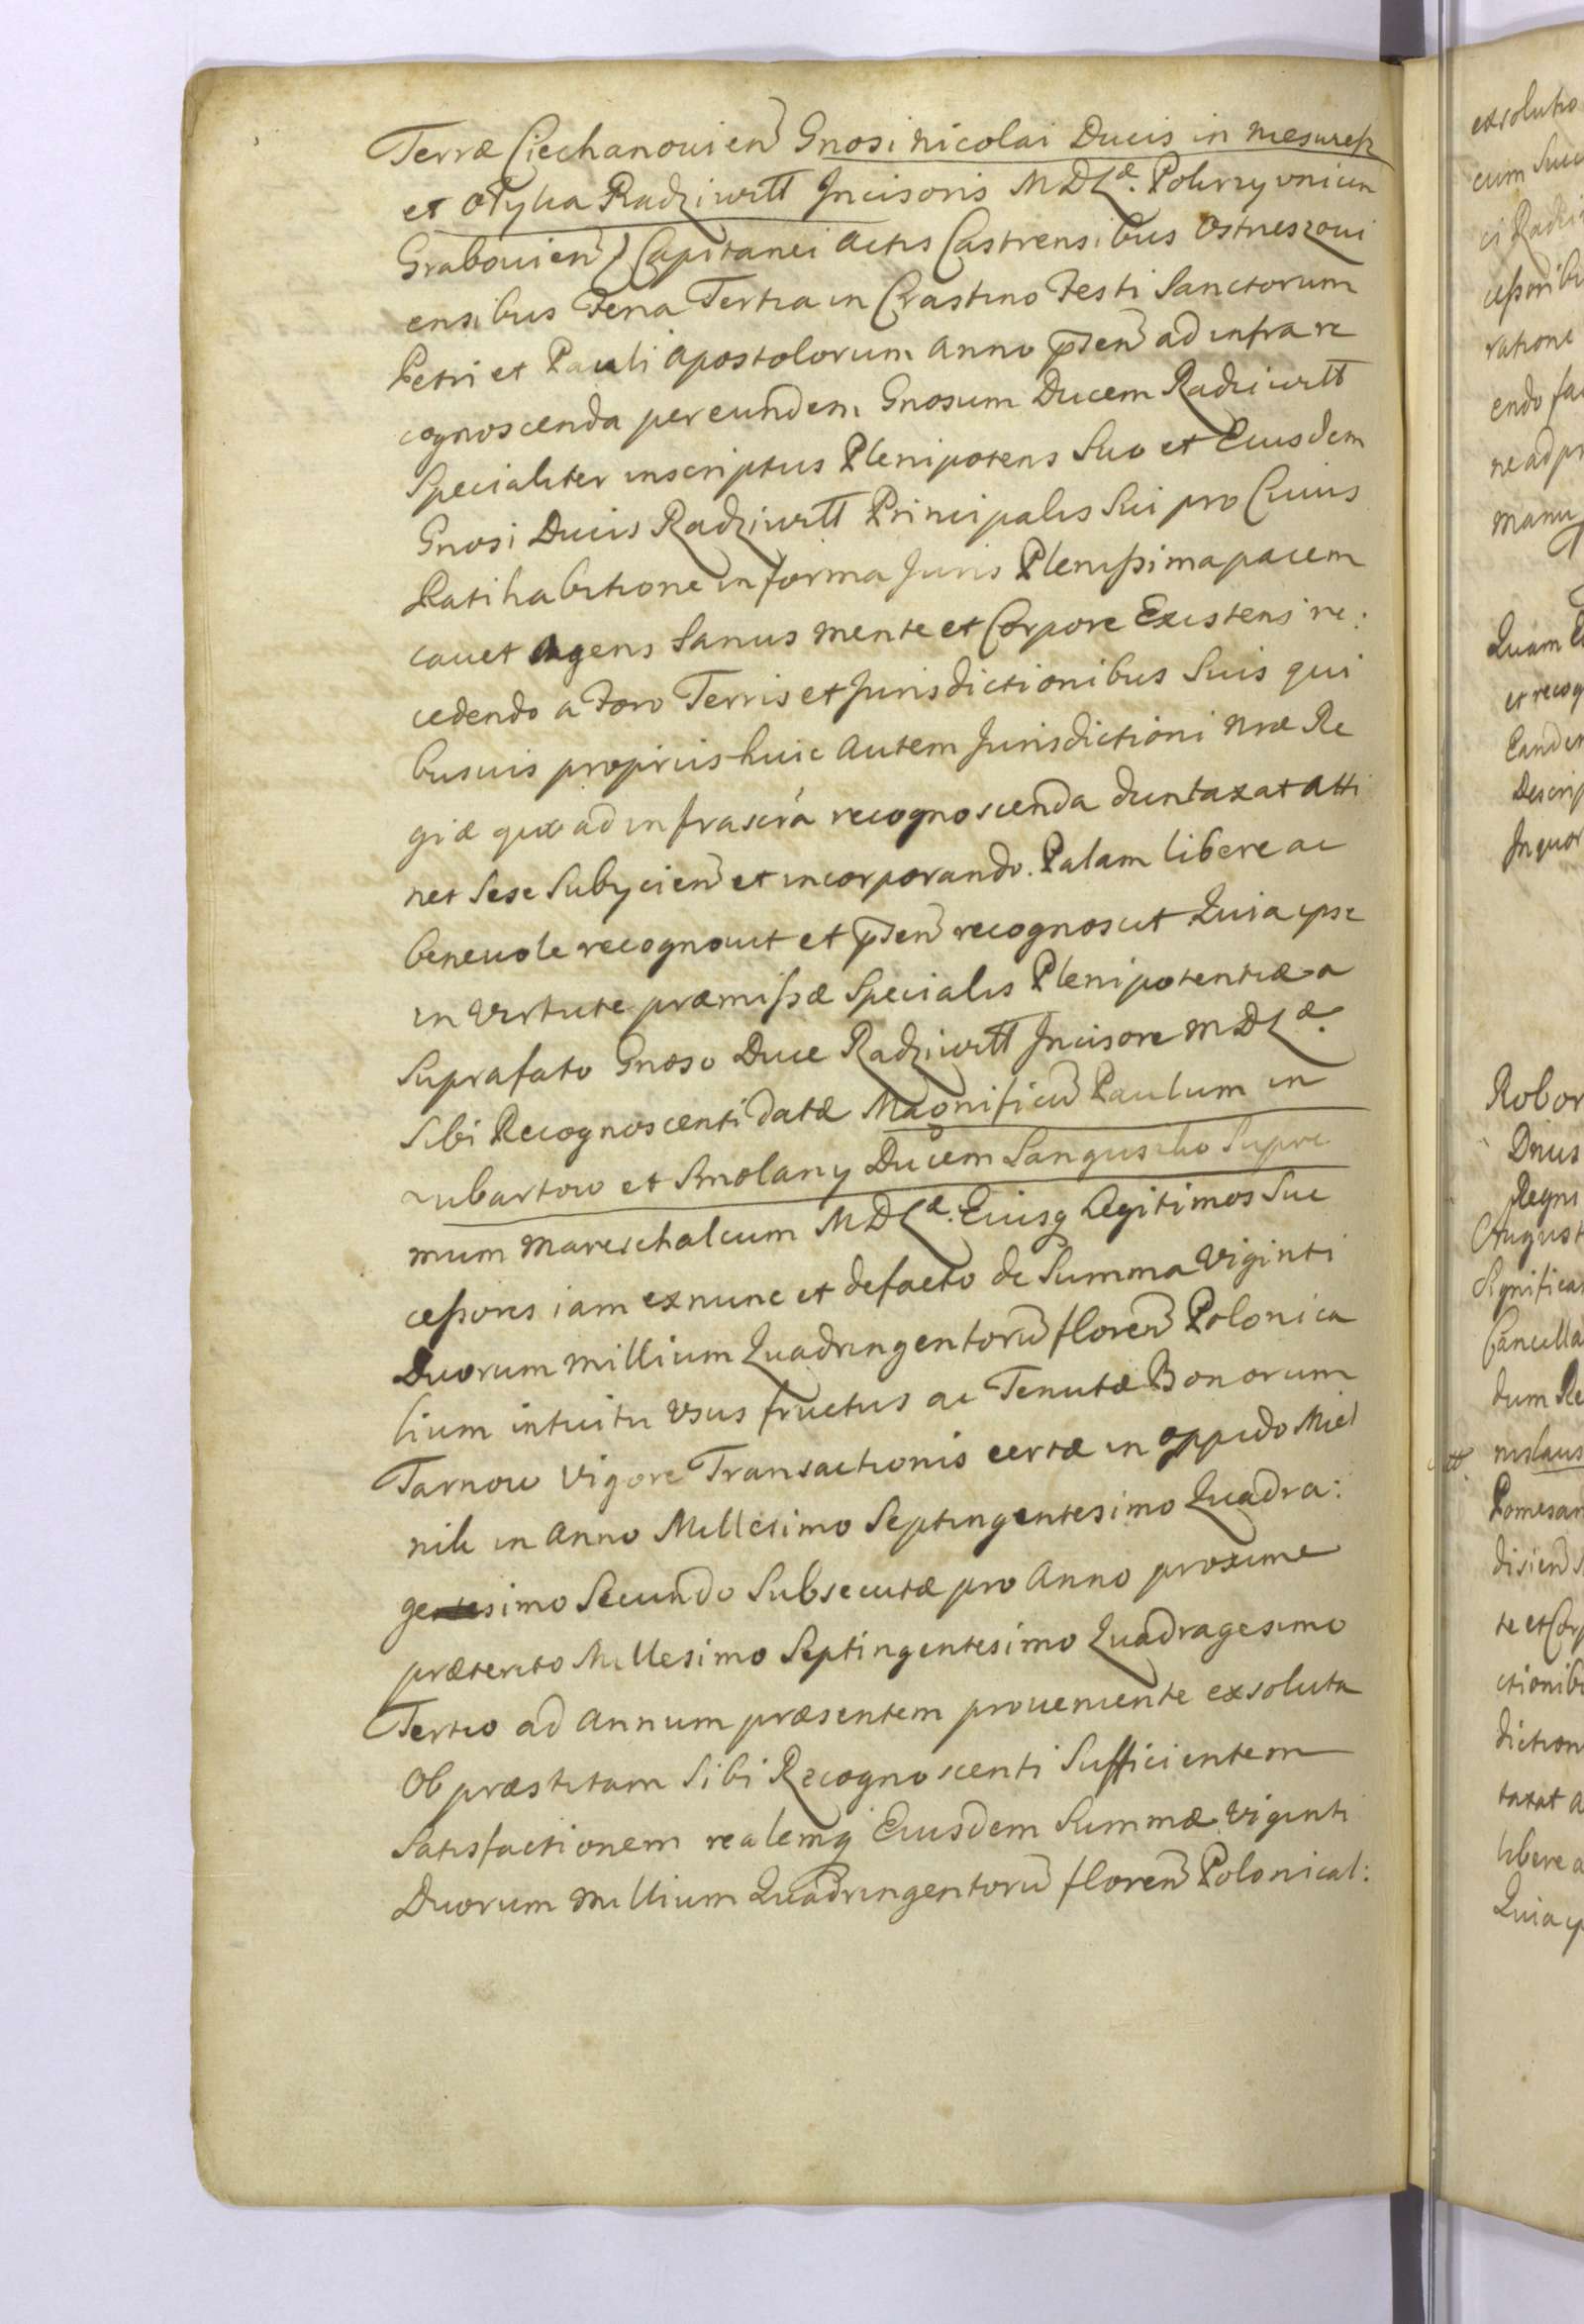 Terræ Ciechanouien Gnosi Nicolai Ducis in
et Radziwill Incisoris MDLæ.
Grabouien Capitanei Actis Castrensibus Ostrieszoui
ensibus Feria Tertia in Crastino Festi Sanctorum
Petri et Pauli Apostolorum Anno pten ad infra re
cognoscenda per eundem Gnosum Ducem Radziwill
Specialiter inscriptus Plenipotens Suo et Eiusdem
Gnosi Ducis Radziwill Principalis Sui pro Cuius
Ratihabitione in forma Juris Plenissima pacem
cauet Agens Sanus mente et Corpore Existens re:
cedendo a Foro Terris et Jurisdictionibus Suis qui
busuis proprijs huic Autem Jurisdictioni nræ Re
giæ quo ad infrascra recognoscenda duntaxat Atti
net Sese Subycien et incorporando. Palam libere ac
beneuole recognouit et pten recognoscit Quia ipse
in Virtute præmissæ Specialis Plenipotentiæ a
Suprafato Gnoso Duce Radziwill Incisore MDLæ.
Sibi Recognoscenti datæ Magnificu Paulum in
Lubartow et Smolany Ducem Sangusko Supre
mum Mareschalcum MDLæ. Eiusq Legitimos Suc
cessores iam exnunc et defacto de Summa Viginti
Duorum millium Quadringentoru floren Polonica
lium intuitu Usus fructus ac Tenutæ Bonorum
Tarnow Vigore Transactionis certæ in oppido Miel
nik in Anno Millesimo Septingentesimo Quadra:
gesimo Secundo Subsecutæ pro Anno proxime
præterito Millesimo Septingentesimo Quadragesimo
Tertio ad Annum præsentem proueniente exsoluta
Ob præstitam Sibi Recognoscenti Sufficientem
Satisfactionem realemq Eiusdem Summæ Viginti
Duorum millium Quadringentoru floren Polonical:
exsolutio
cum Succ
ratione
manu
Quam
et recog
Descrip
Robor
Regni
August
Significa
Cancella
dum Re
nislaus
Pomesan
te et Corp
diction
taxat a
libere a
Quia ip